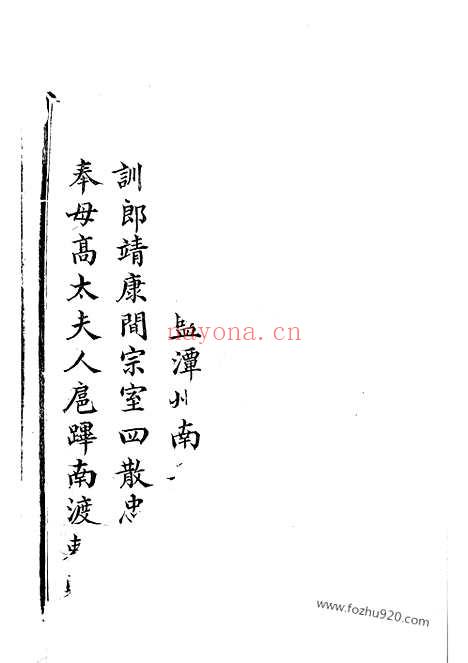 監潭州南
訓郎靖康間宗室四散忠
奉母高太夫人扈蹕南渡
nayona.cn
www.fozhu920.com